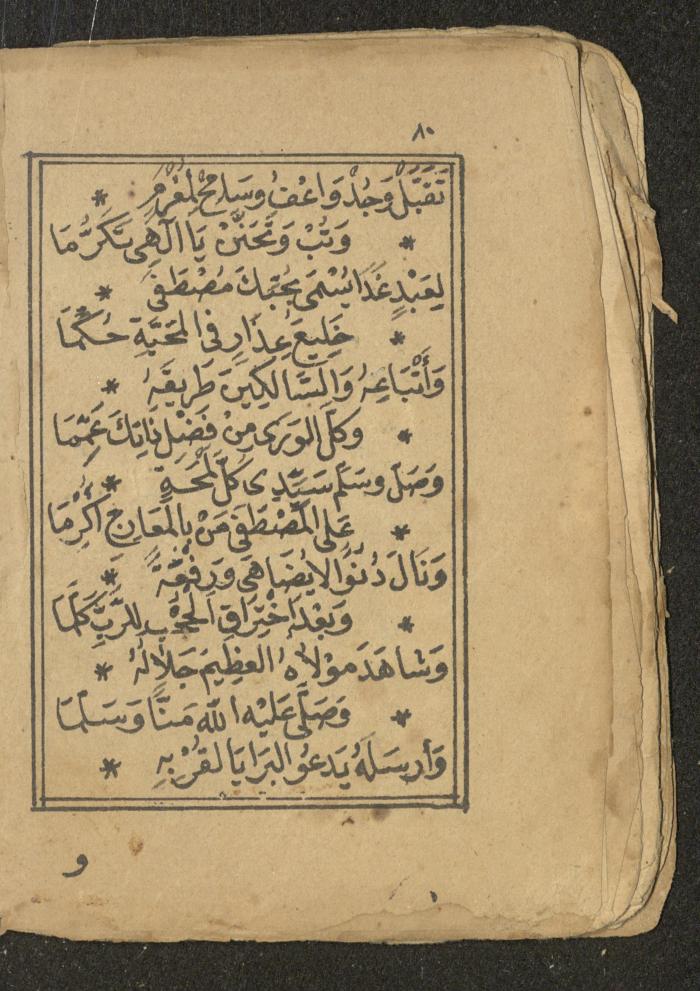 ٨٠
تَقَبَّلْ وَجُدْ وَاعْفُ وَسَامِحْ لِمُغْرَمٍ *
* وَتُبْ وَتَحَنَّنْ يَا الَهِى تَكَرُّمَا
لِعَبْدٍ غَدَا يُسْمَى بِحُبِّكَ مُصْطَفَى *
* خَلِيعَ عِذَارٍ فى المَحَبَّةِ حُكِّمَا
وَأَتْبَاعِهُ وَالسَّالِكِينَ طَرِيقَهُ *
* وَكُلِّ الوَرَى مِنْ فَضْلِ ذَاتِكَ عَمِّمَا
وَصَلِّ وسَلِّمْ سَيِّدِى كُلَّ لَمْحَةٍ *
* عَلَى المُصْطَفَى مَنْ بِالمَعَارِجِ اُكْرِمَا
وَنَالَ دُنُوًّا لايُضَاهَى وَرِفْعَةً *
* وَبَعْدَ اخْتِرَاقِ الحُجْبِ لِلرَّبِّ كَلَّمَا
وَشَاهَدَ مَوْلَاهُ العَظِيمَ جَلَالُهُ *
* وَصَلَّى عَلَيْهِ اللّٰه مَنًّا وَسَلَّمَا
وَأرسَلَهُ يَدعُو البَرَايَا لقُرْبِهِ *
و